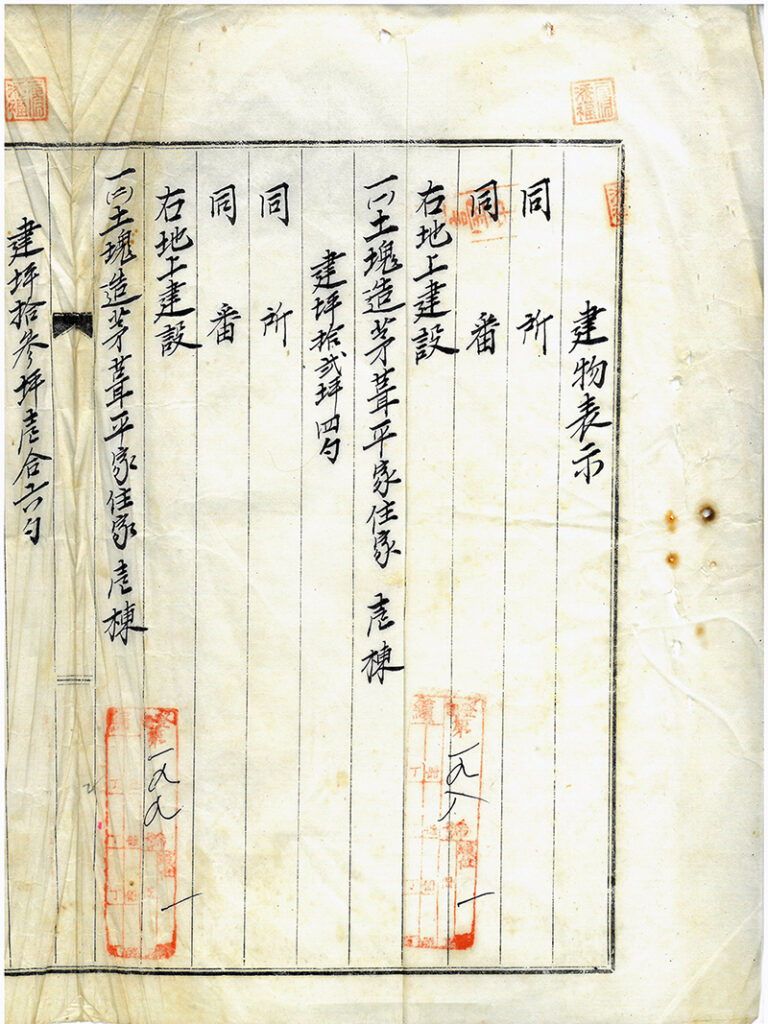 建物表示
同所
同番
右地上建設
一(一)土塊造茅葺平家住家壱棟
建坪拾弐坪四勺
同所
同番
右地上建設
一(二)土塊造茅葺平家住家壱棟
建坪拾参坪壱合六勺
第
一九八
一
第
一九九
一